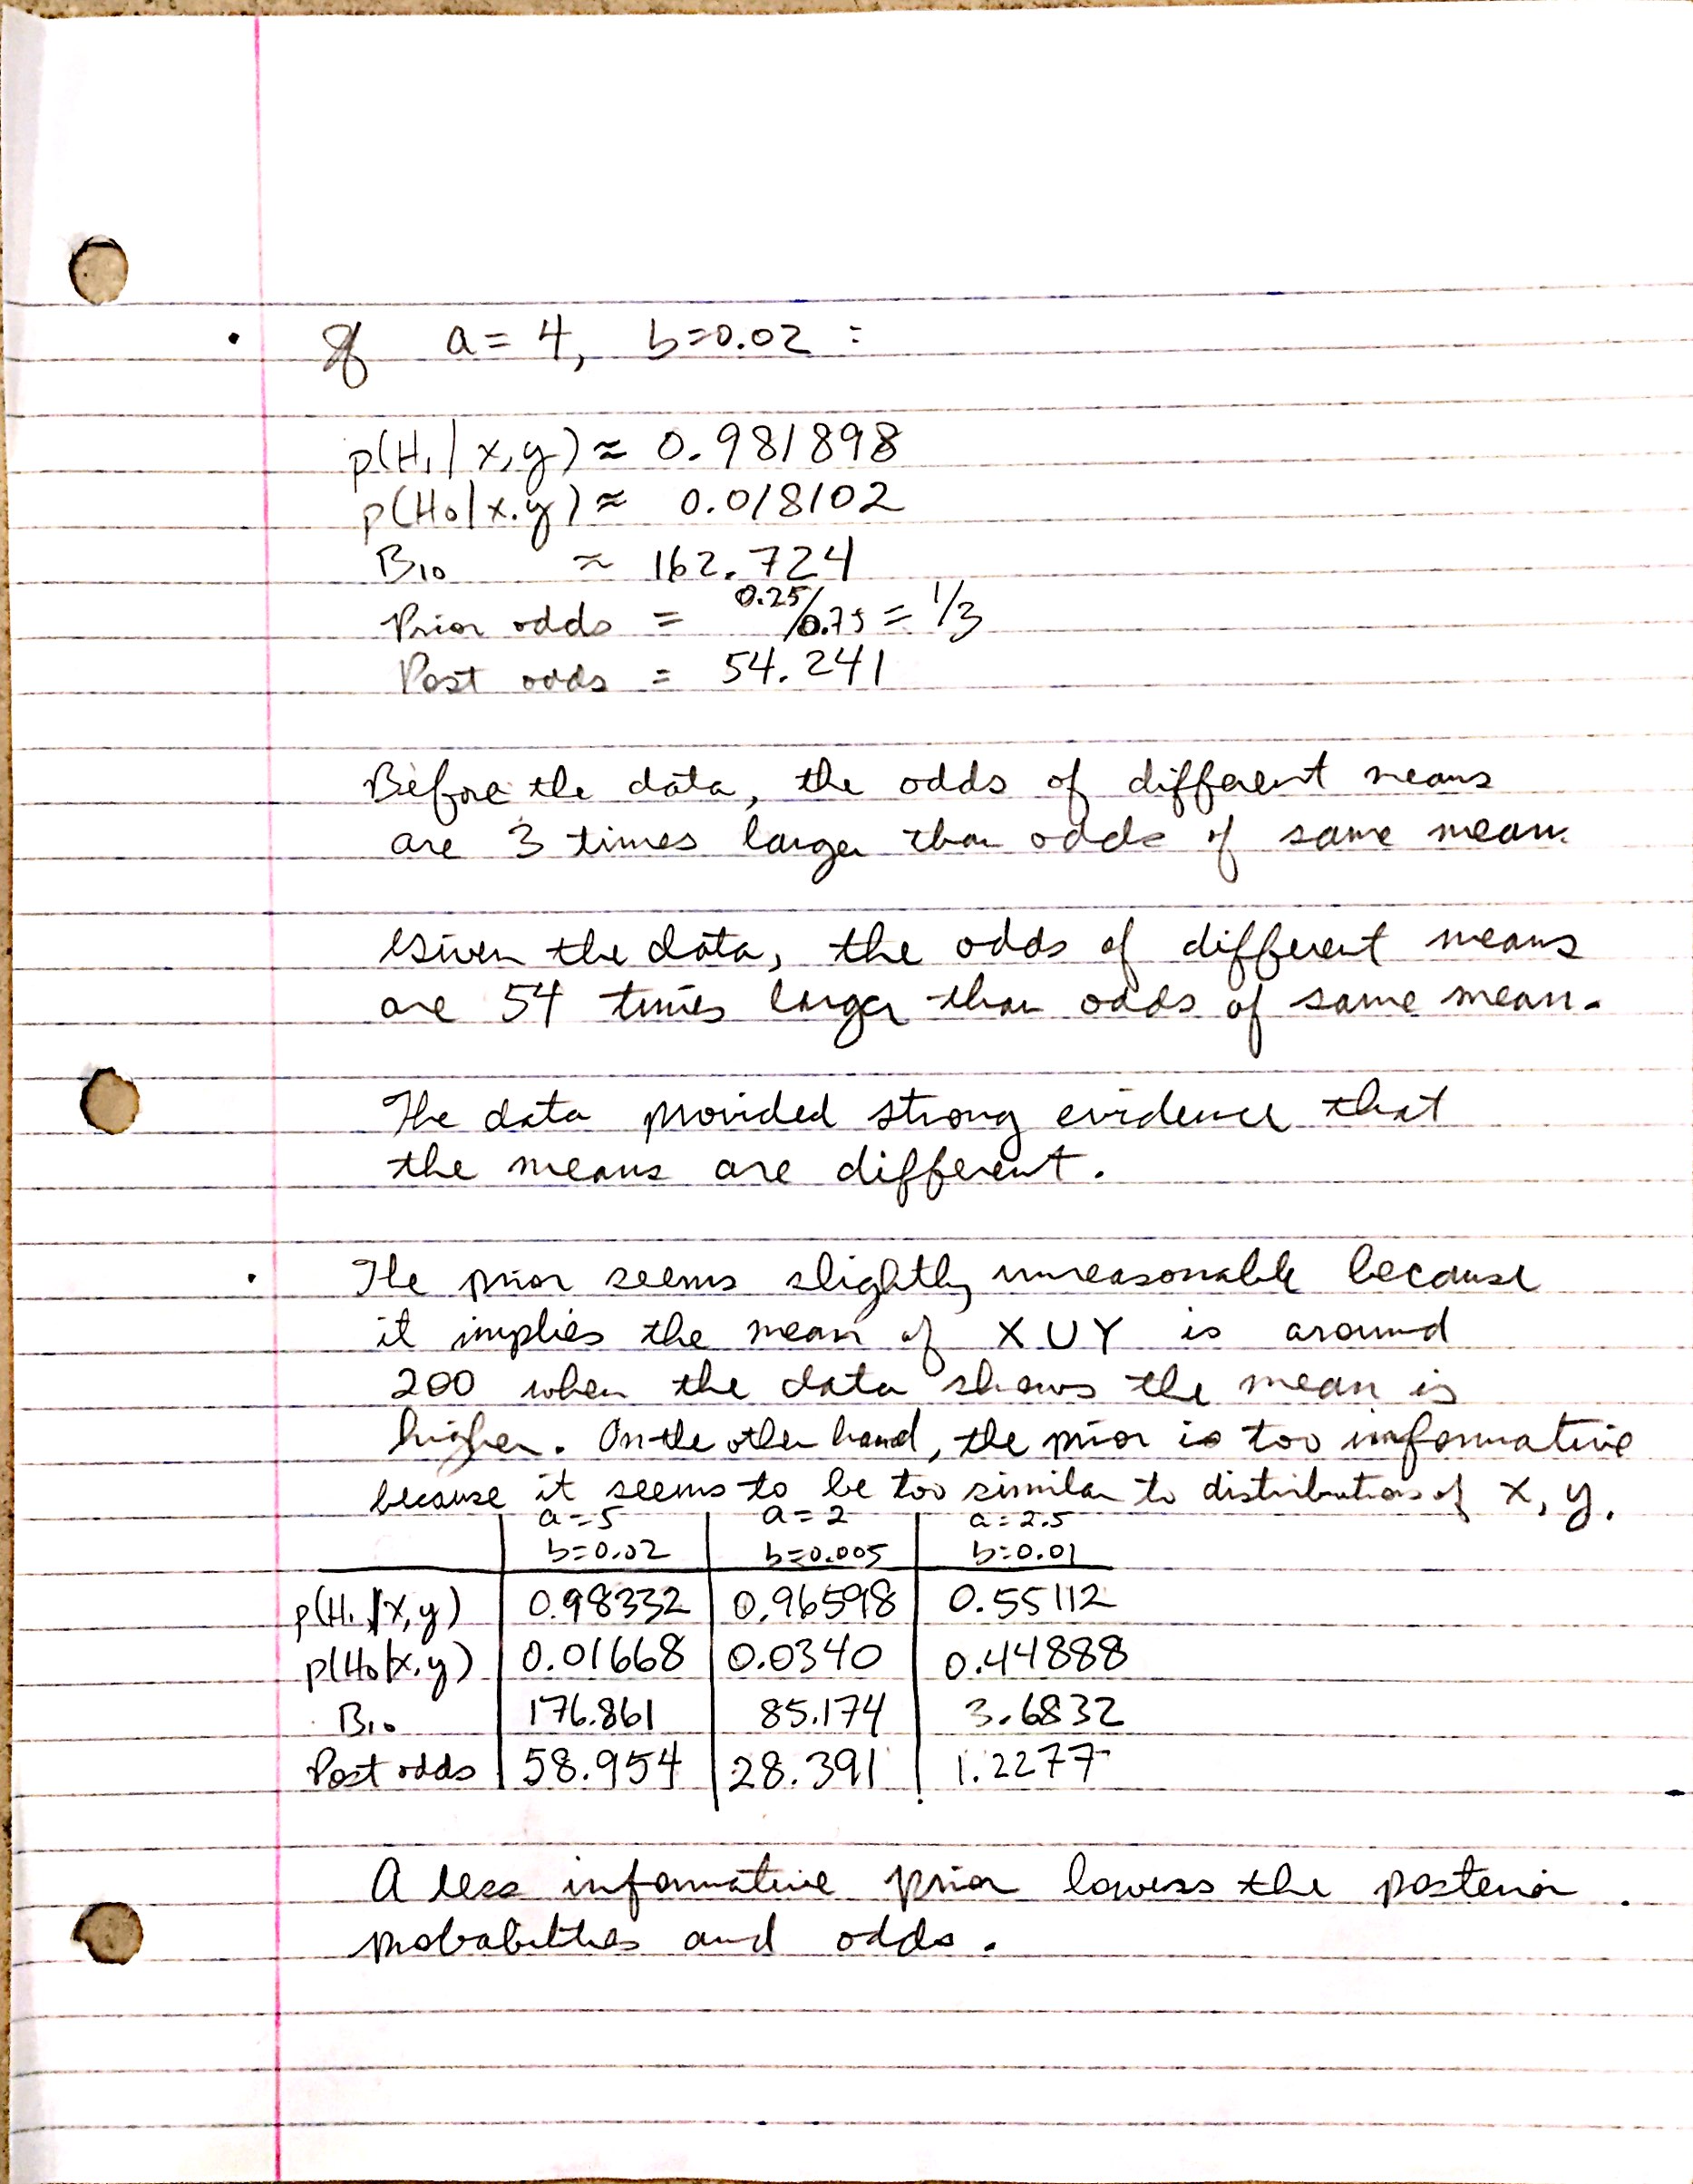 • If a = 4, b=0.02 :
p(H₁ | x,y) ≈ 0.981898
p(H₀ | x.y) ≈ 0.018102
B₁₀ ≈ 162.724
Prior odds = 0.25/0.75 = 1/3
Post odds = 54.241
Before the data, the odds of different means
are 3 times larger than odds of same mean.
Given the data, the odds of different means
are 54 times larger than odds of same mean.
The data provided strong evidence that
the means are different.
• The prior seems slightly unreasonable because
it implies the mean of X ∪ Y is around
200 when the data shows the mean is
higher. On the other hand, the prior is too informative
because it seems to be too similar to distributions of x, y.
a = 5 a = 2 a = 2.5
b=0.02 b=0.005 b=0.01
p(H₁ | x,y) 0.98332 0.96598 0.55112
p(H₀ | x.y) 0.01668 0.0340 0.44888
B₁₀ 176.861 85.174 3.6832
Post odds 58.954 28.391 1.2277
A less informative prior lowers the posterior
probabilities and odds.